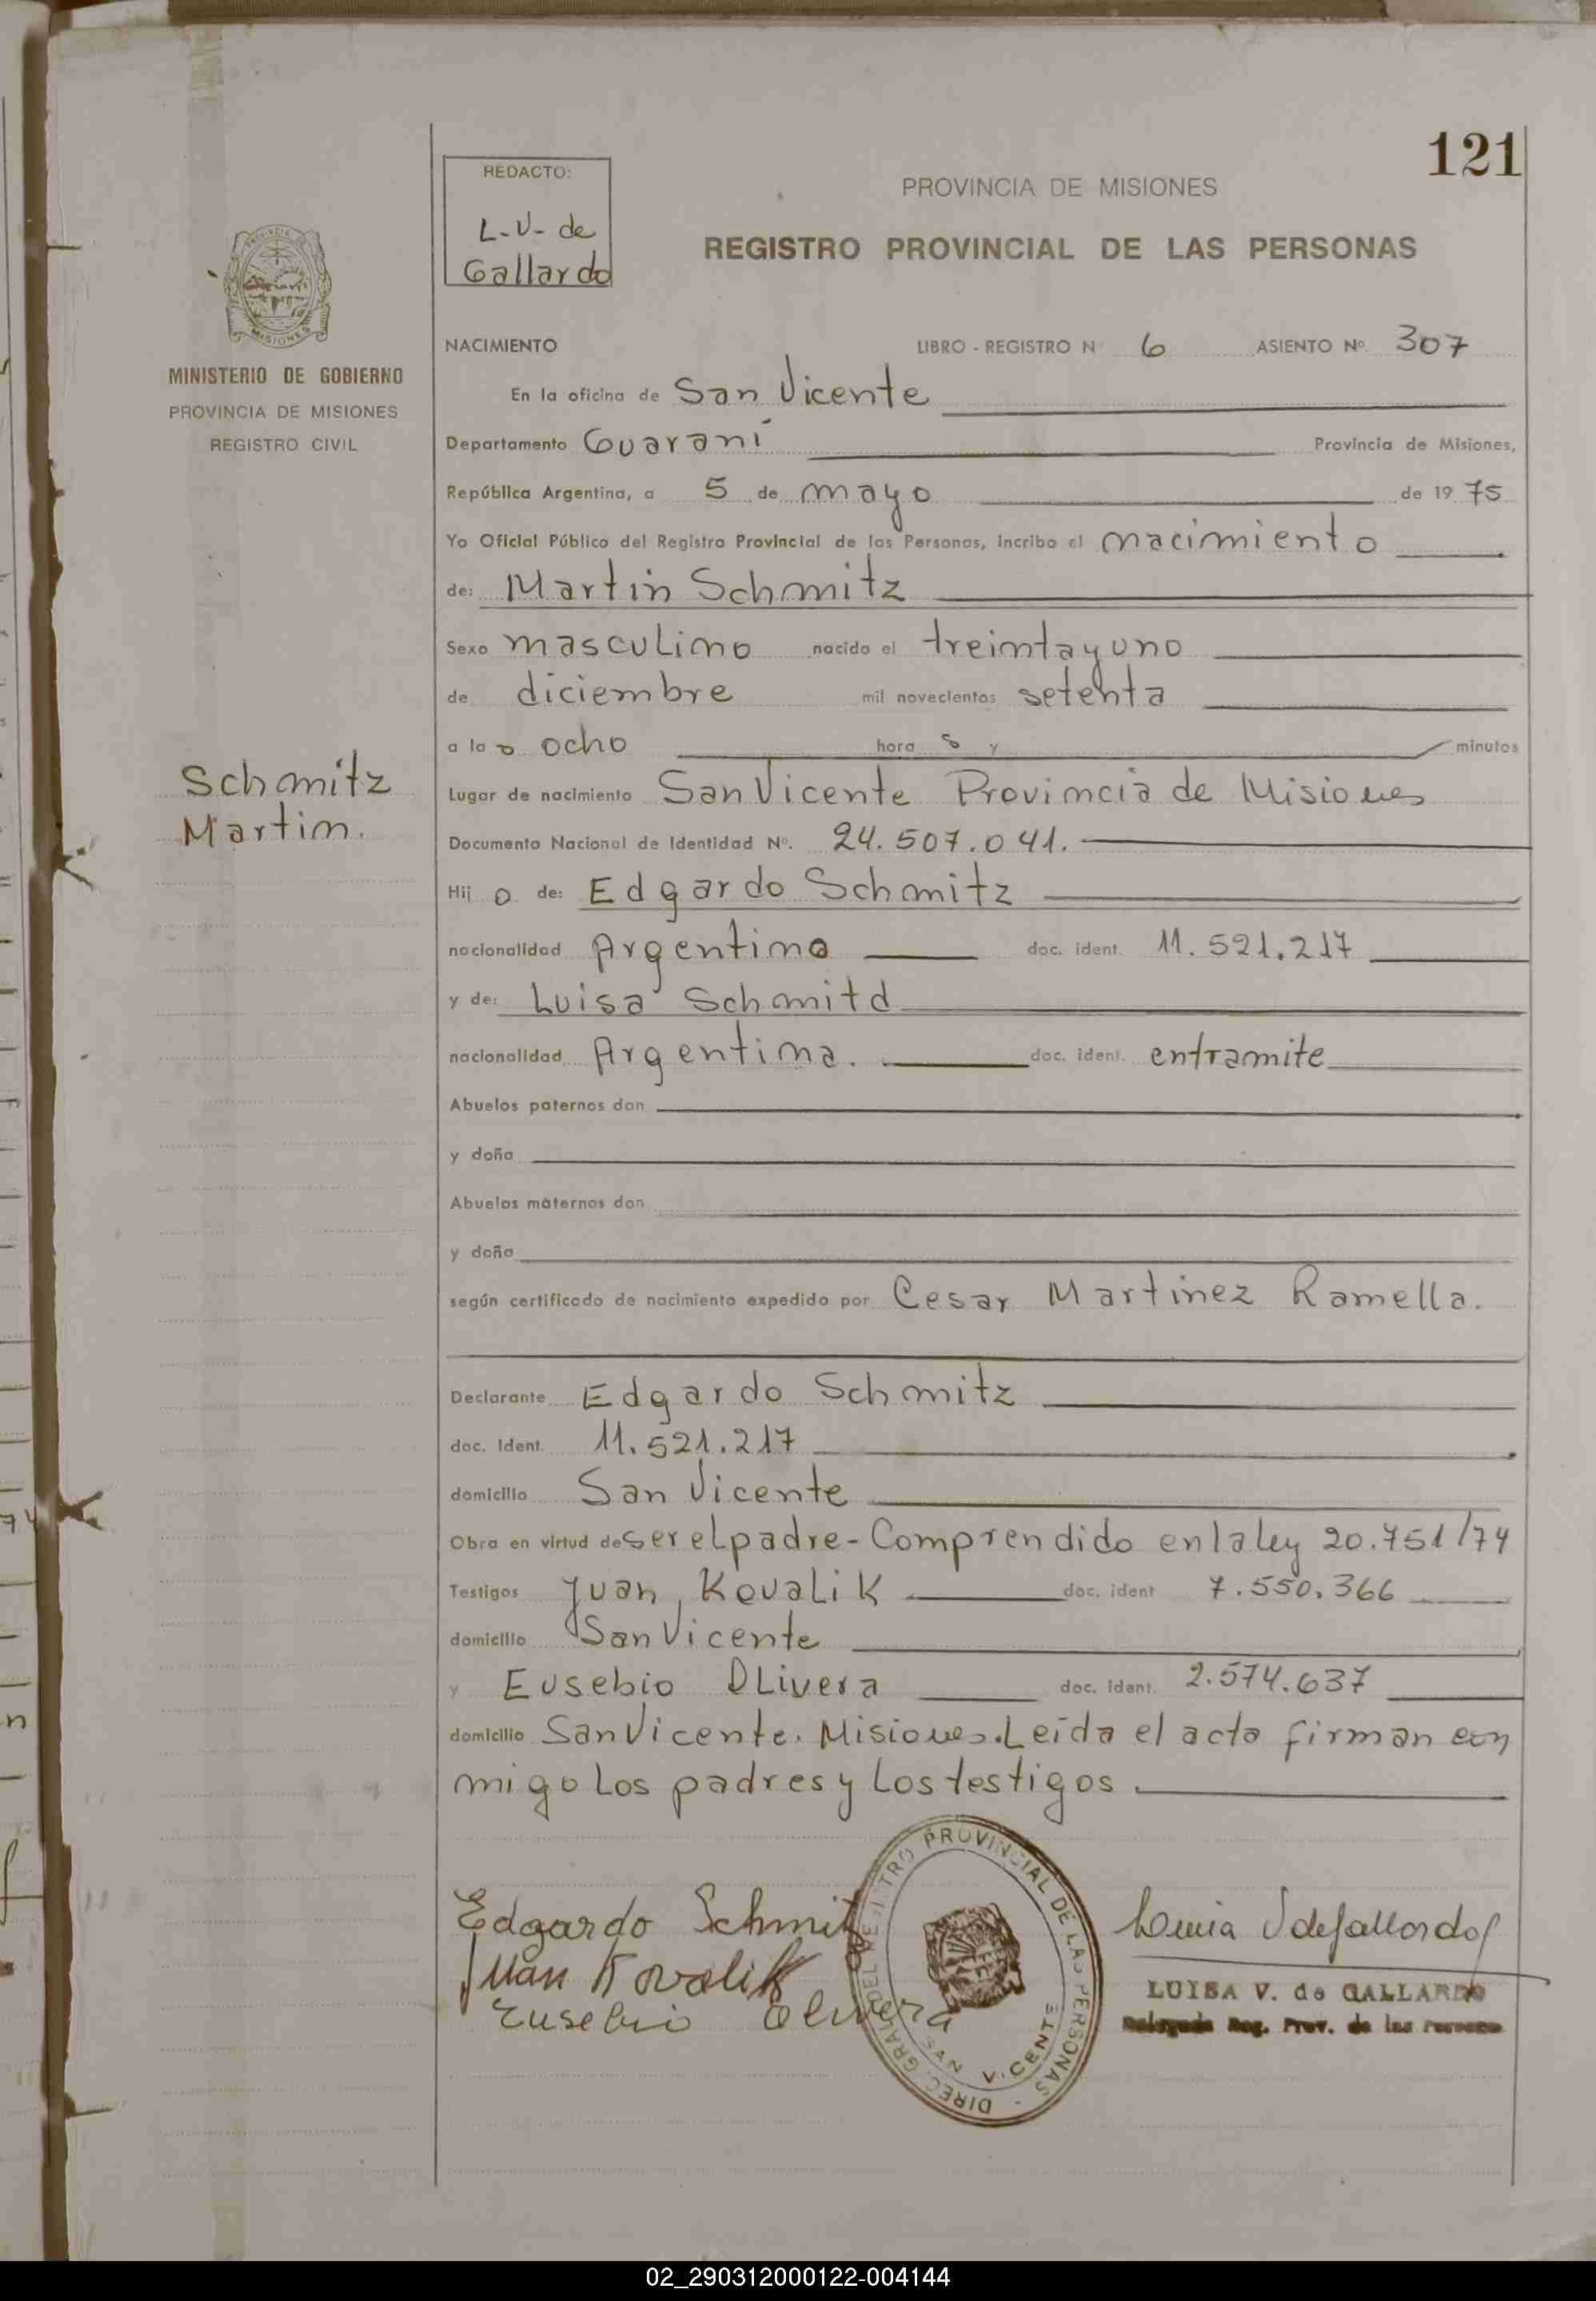 121
REDACTO:
L-V- de
Gallardo
PROVINCIA DE MISIONES
REGISTRO PROVINCIAL DE LAS PERSONAS
PROVINCIA DE
MISIONES
MINISTERIO DE GOBIERNO
PROVINCIA DE MISIONES
REGISTRO CIVIL
NACIMIENTO LIBRO - REGISTRO Nº 6 ASIENTO Nº 307
En la oficina de San Vicente
Departamento Guaraní Provincia de Misiones,
República Argentina, a 5 de mayo de 19 75
Yo Oficial Público del Registro Provincial de las Personas, incribo el nacimiento
de: Martin Schmitz
Sexo masculino nacido el treintayuno
de diciembre mil novecientos setenta
a las ocho horas y minutos
Schmitz
Martin.
Lugar de nacimiento San Vicente Provincia de Misiones
Documento Nacional de Identidad Nº. 24.507.041.
Hijo de: Edgardo Schmitz
nacionalidad Argentino doc. ident. 11.521.217
y de: Luisa Schmitd
nacionalidad Argentina. doc. ident. entramite
Abuelos paternos don
y doña
Abuelos maternos don
y doña
según certificado de nacimiento expedido por Cesar Martinez Ramella.
Declarante Edgardo Schmitz
doc. Ident. 11.521.217
domicilio San Vicente
Obra en virtud de ser el padre - Comprendido en la ley 20.751/74
Testigos Juan Kovalik doc. ident 7.550.366
domicilio San Vicente
y Eusebio OLivera doc. ident. 2.574.637
domicilio San Vicente. Misiones. Leída el acta firman con
migo Los padres y Los testigos.
Edgardo Schmitz
Juan Kovalik
Eusebio Olivera
DIREC. GRAL. DEL REGISTRO PROVINCIAL DE LAS PERSONAS -
SAN VICENTE
Luisa V de Gallardo
LUISA V. de GALLARDO
Delegada Reg. Prov. de las Personas
02_290312000122-004144